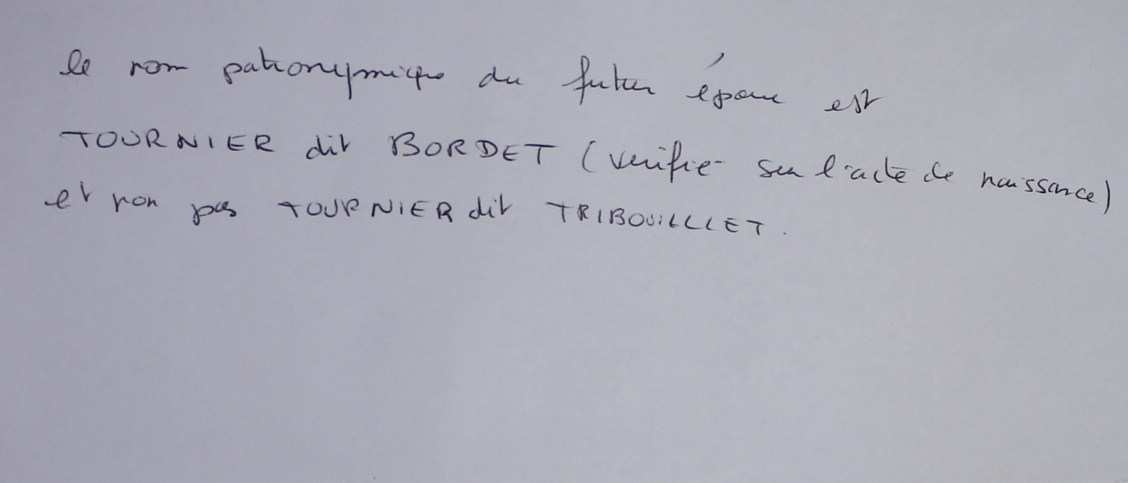 le nom patronymique du futur époux est
TOURNIER dit BORDET (vérifié sur l'acte de naissance)
et non pas TOURNIER dit TRIBOUILLET.